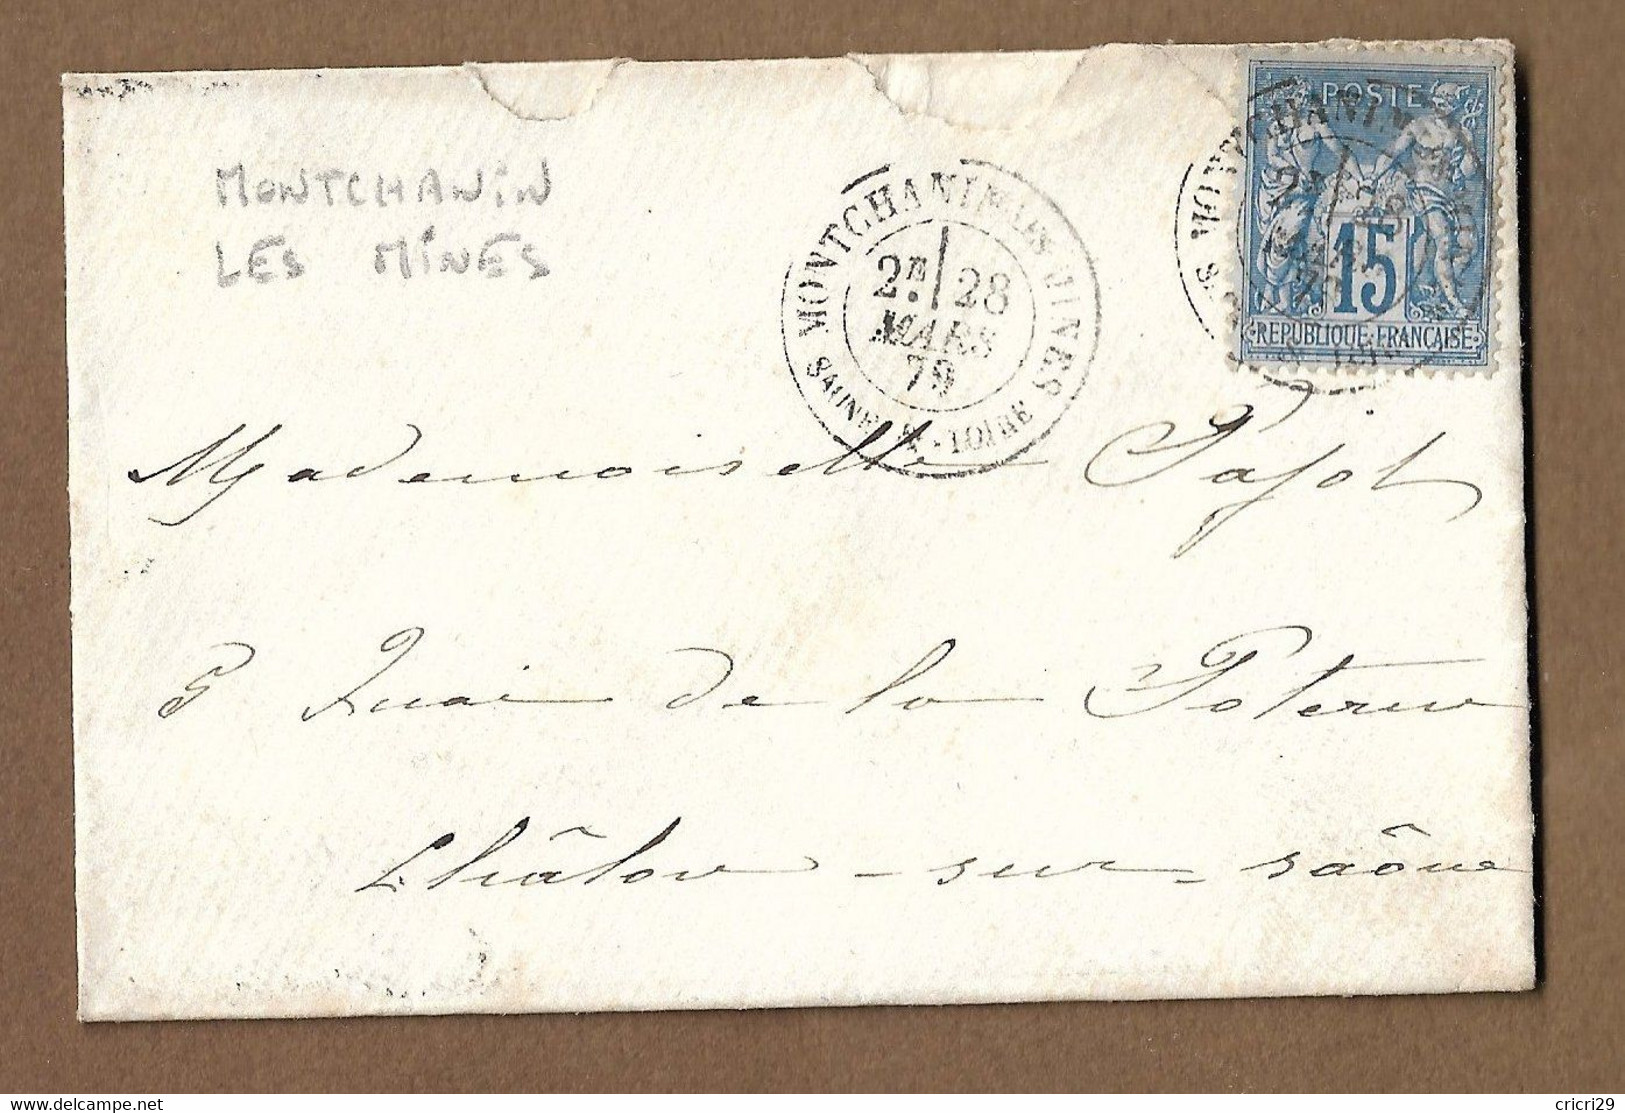 MONTCHANIN
LES MINES
MONTCHANIN LES MINES
2E 28
MARS
79
SAÔNE-&-LOIRE
POSTE
15
REPUBLIQUE FRANÇAISE
Mademoiselle Pajot
5 Quai de la Poterne
Châlon-sur-Saône
www.delcampe.net
cricri29